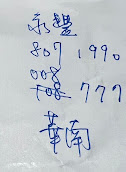 永豐
807 1990
008
708 777
華南